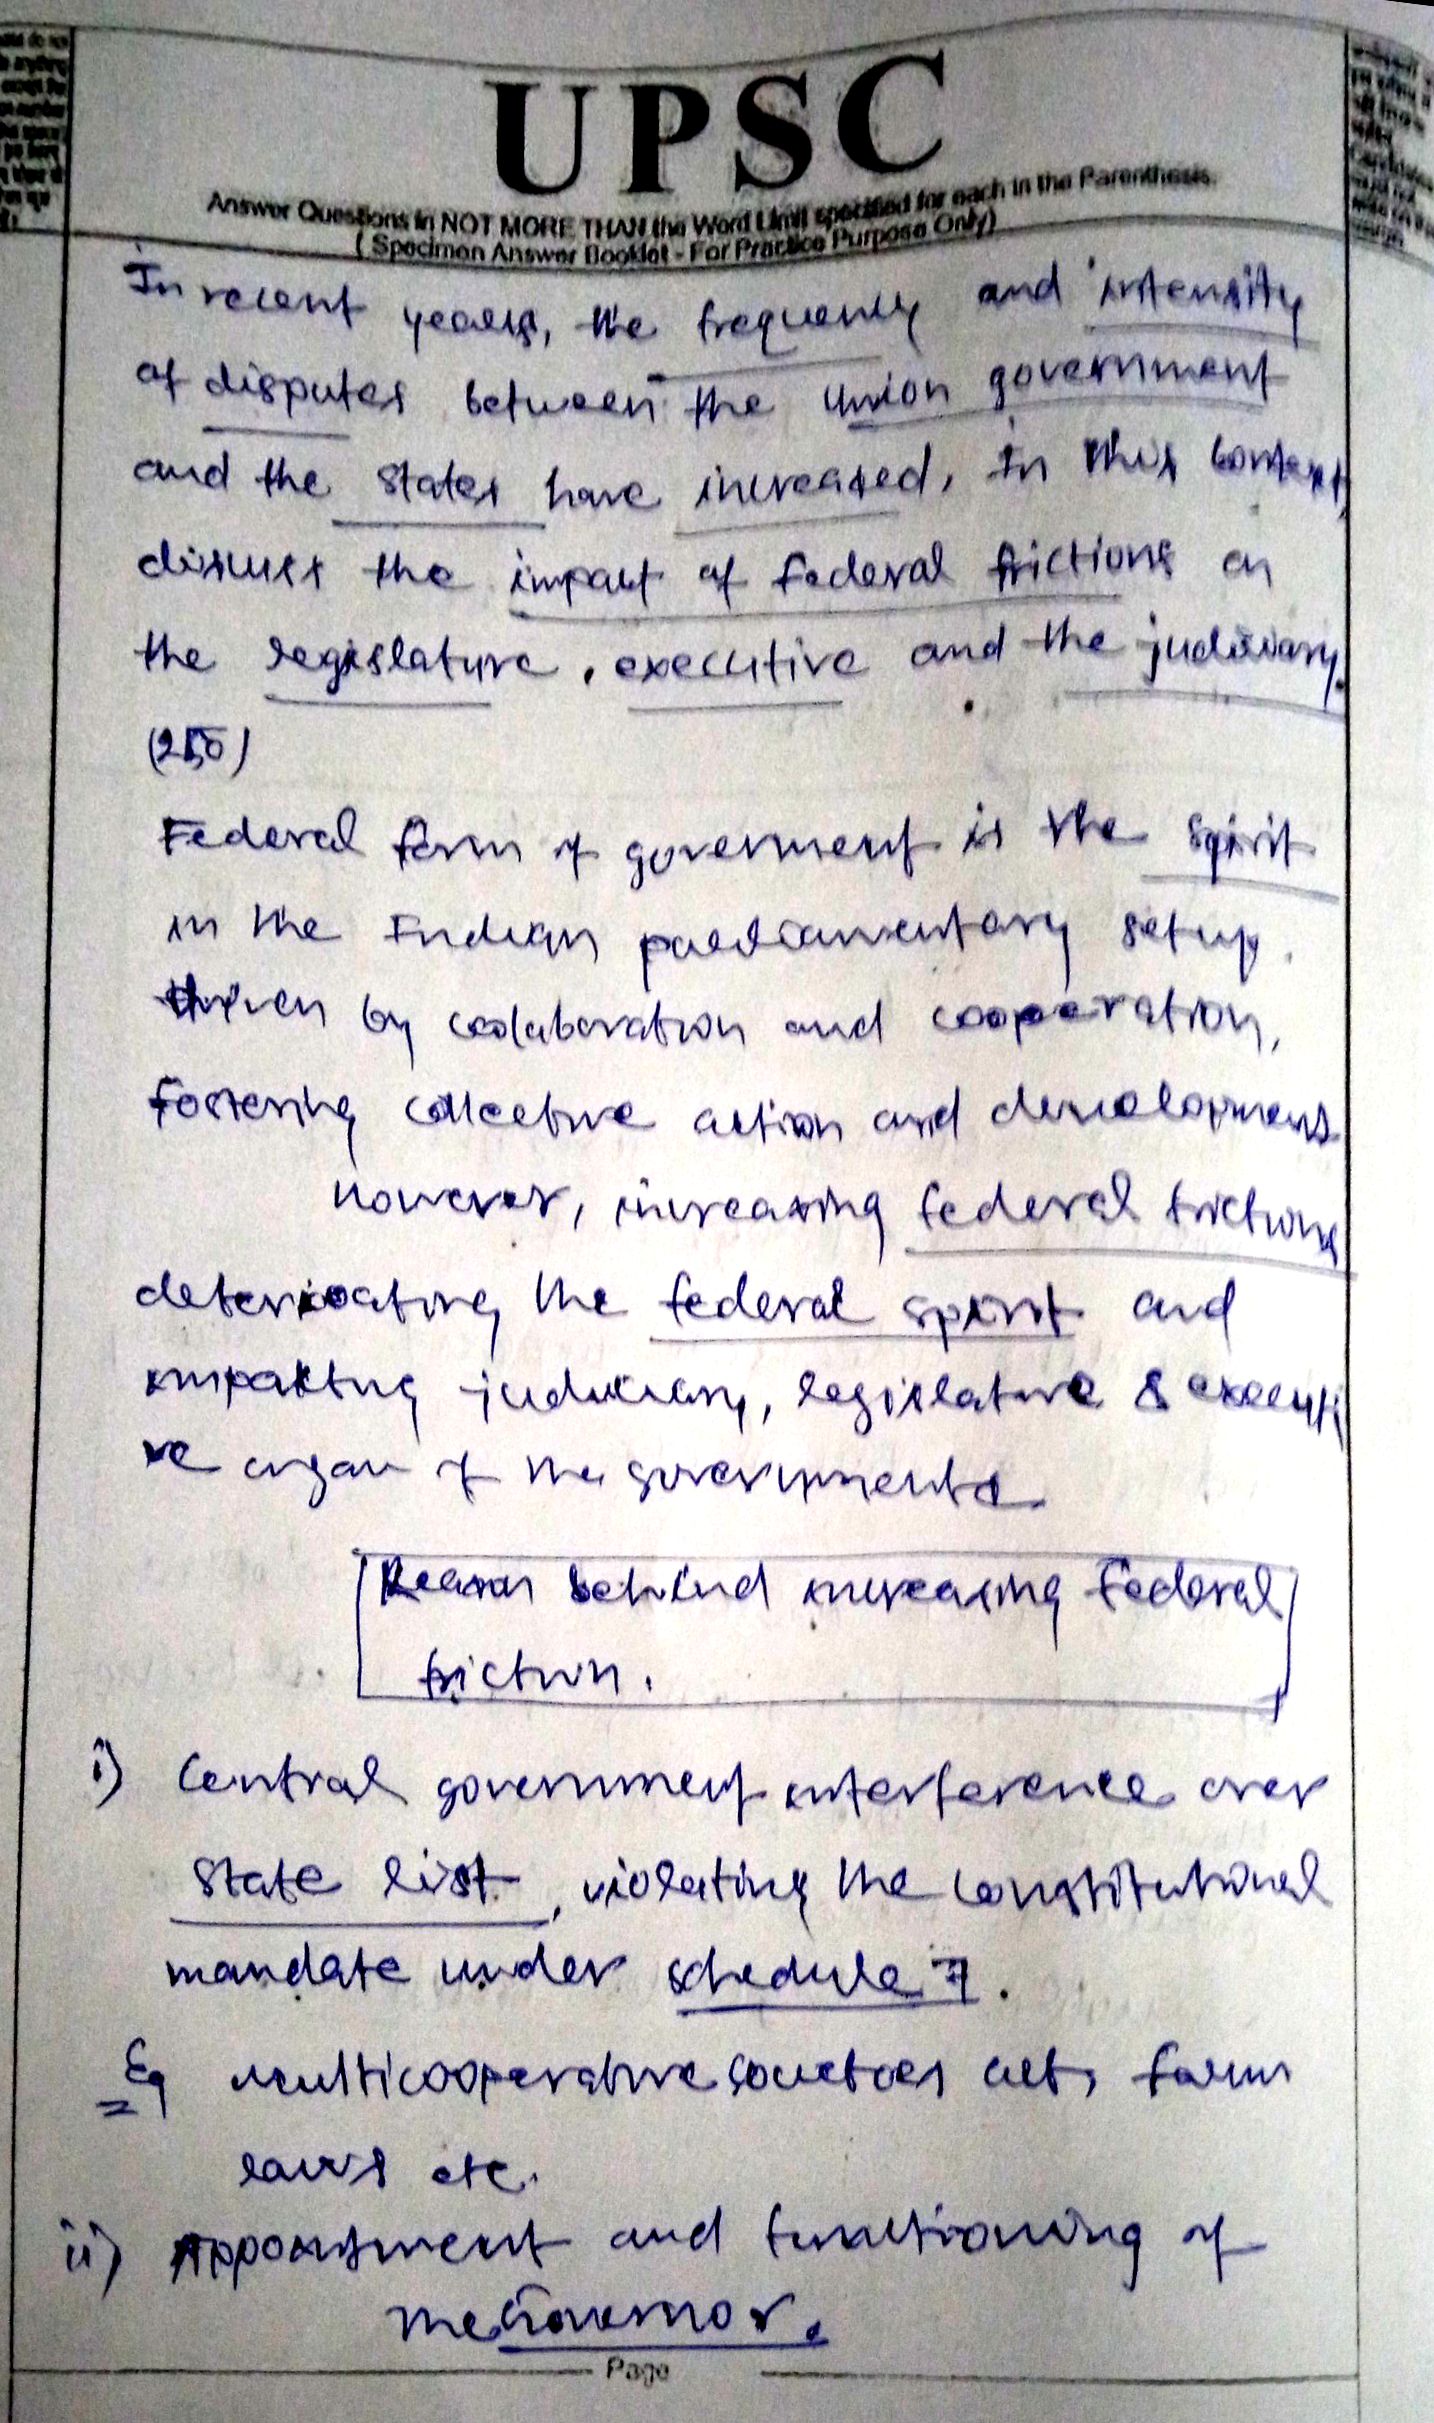 UPSC
Answer Questions in NOT MORE THAN the Word Limit specified for each in the Parenthesis.
( Specimen Answer Booklet - For Practice Purpose Only)
In recent years, the frequency and intensity
of disputes between the Union government
and the states have increased, in this context,
discuss the impact of federal frictions on
the legislature, executive and the judiciary.
(250)
Federal form of government is the spirit
in the Indian parliamentary setup.
driven by collaboration and cooperation,
fostering collective action and development.
However, increasing federal frictions
deteriorating the federal spirit and
impacting judiciary, legislature & executi
ve organ of the governments.
Reason behind increasing Federal
friction.
i) Central government interference over
state list, violating the constitutional
mandate under schedule 7.
Eg multicooperative societies act, farm
laws etc.
ii) Appointment and functioning of
the Governor.
Page